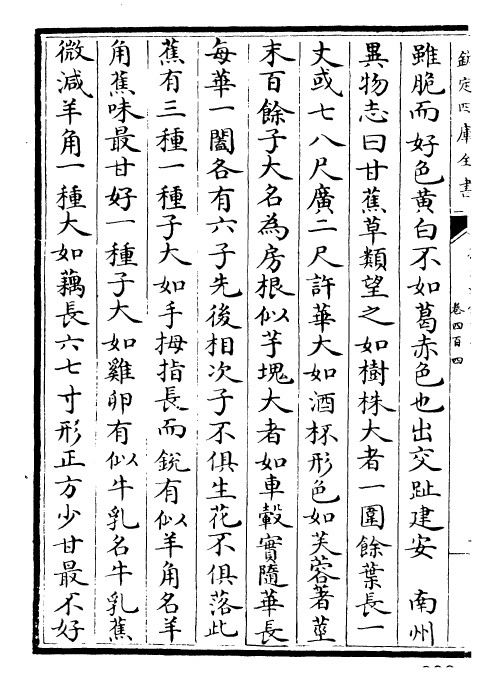 欽定四庫全書
卷四百四
雖脆而好色黃白不如葛赤色也出交趾建安　南州
異物志曰甘蕉草類望之如樹株大者一圍餘葉長一
丈或七八尺廣二尺許華大如酒杯形色如芙蓉著莖
末百餘子大名為房根似芋塊大者如車轂實隨華長
每華一闔各有六子先後相次子不俱生花不俱落此
蕉有三種一種子大如手拇指長而銳有似羊角名羊
角蕉味最甘好一種子大如雞卵有似牛乳名牛乳蕉
微減羊角一種大如藕長六七寸形正方少甘最不好